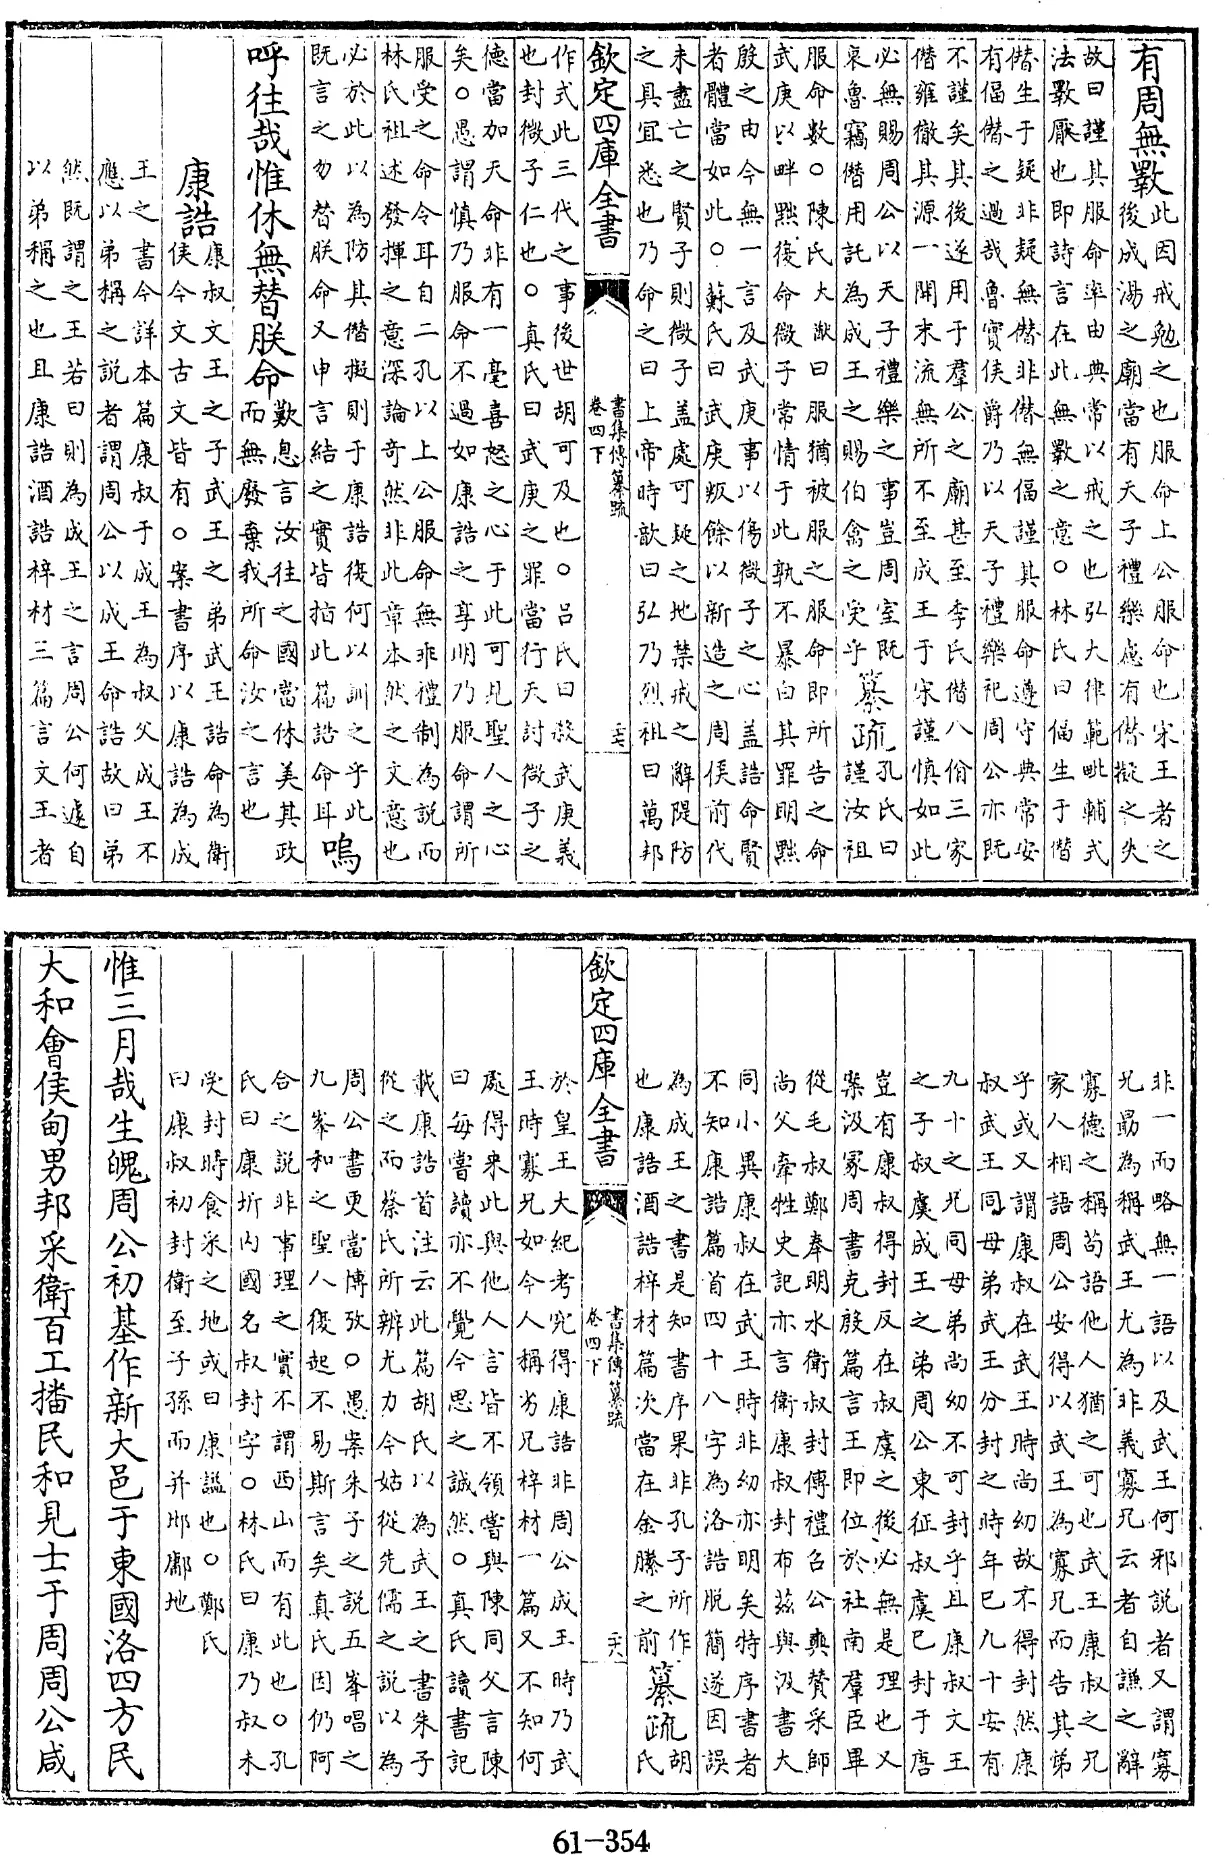 有周無斁
此因戒勉之也服命上公服命也宋王者之
後成湯之廟當有天子禮樂慮有僣擬之失
故曰謹其服命率由典常以戒之也弘大律範毗輔式
法斁厭也即詩言在此無斁之意○林氏曰偪生于僭
僭生于疑非疑無僭非僭無偪謹其服命遵守典常安
有偪僭之過哉魯實侯爵乃以天子禮樂祀周公亦既
不謹矣其後遂用于羣公之廟甚至季氏僭八佾三家
僭雍徹其源一開末流無所不至成王于宋謹慎如此
必無賜周公以天子禮樂之事豈周室既
衰魯竊僭用託為成王之賜伯禽之受乎
纂疏
孔氏曰
謹汝祖
服命數○陳氏大猷曰服猶被服之服命即所告之命
武庚以畔黜後命微子常情于此孰不暴白其罪明黜
殷之由今無一言及武庚事以傷微子之心盖誥命賢
者體當如此○蘇氏曰武庚叛餘以新造之周侯前代
未盡亡之賢子則微子盖處可疑之地禁戒之辭隄防
之具宜悉也乃命之曰上帝時歆曰弘乃烈祖曰萬邦
欽定四庫全書
書集傳纂疏
卷四下
二七
作式此三代之事後世胡可及也○呂氏曰殺武庚義
也封微子仁也○真氏曰武庚之罪當行天討微子之
德當加天命非有一毫喜怒之心于此可見聖人之心
矣○愚謂慎乃服命不過如康誥之享明乃服命謂所
服受之命令耳自二孔以上公服命無乖禮制為說而
林氏祖述發揮之意深論奇然非此章本然之文意也
必於此以為防其僭擬則于康誥後何以訓之乎此
既言之勿替朕命又申言結之實皆指此篇誥命耳
嗚
呼往哉惟休無替朕命
歎息言汝往之國當休美其政
而無廢棄我所命汝之言也
康誥
康叔文王之子武王之弟武王誥命為衛
侯今文古文皆有○案書序以康誥為成
王之書今詳本篇康叔于成王為叔父成王不
應以弟稱之說者謂周公以成王命誥故曰弟
然既謂之王若曰則為成王之言周公何遽自
以弟稱之也且康誥酒誥梓材三篇言文王者
非一而略無一語以及武王何邪說者又謂寡
兄勗為稱武王尤為非義寡兄云者自謙之辭
寡德之稱苟語他人猶之可也武王康叔之兄
家人相語周公安得以武王為寡兄而告其弟
乎或又謂康叔在武王時尚幼故不得封然康
叔武王同母弟武王分封之時年已九十安有
九十之兄同母弟尚幼不可封乎且康叔文王
之子叔虞成王之弟周公東征叔虞已封于唐
豈有康叔得封反在叔虞之後必無是理也又
案汲冢周書克殷篇言王即位於社南羣臣畢
從毛叔鄭奉明水衛叔封傳禮召公奭贊采師
尚父牽牲史記亦言衛康叔封布茲與汲書大
同小異康叔在武王時非幼亦明矣特序書者
不知康誥篇首四十八字為洛誥脫簡遂因誤
為成王之書是知書序果非孔子所作
也康誥酒誥梓材篇次當在金縢之前
纂疏
胡
氏
欽定四庫全書
書集傳纂疏
卷四下
二六
於皇王大紀考究得康誥非周公成王時乃武
王時寡兄如今人稱劣兄梓材一篇又不知何
處得來此與他人言皆不領嘗與陳同父言陳
曰每嘗讀亦不覺今思之誠然○真氏讀書記
載康誥首注云此篇胡氏以為武王之書朱子
從之而蔡氏所辨尤力今姑從先儒之說以為
周公書更當博攷○愚案朱子之說五峯唱之
九峯和之聖人復起不易斯言矣真氏因仍阿
合之說非事理之實不謂西山而有此也○孔
氏曰康圻內國名叔封字○林氏曰康乃叔未
受封時食采之地或曰康諡也○鄭氏
曰康叔初封衛至子孫而并邶鄘地
惟三月哉生魄周公初基作新大邑于東國洛四方民
大和會侯甸男邦采衛百工播民和見士于周周公咸
61-354